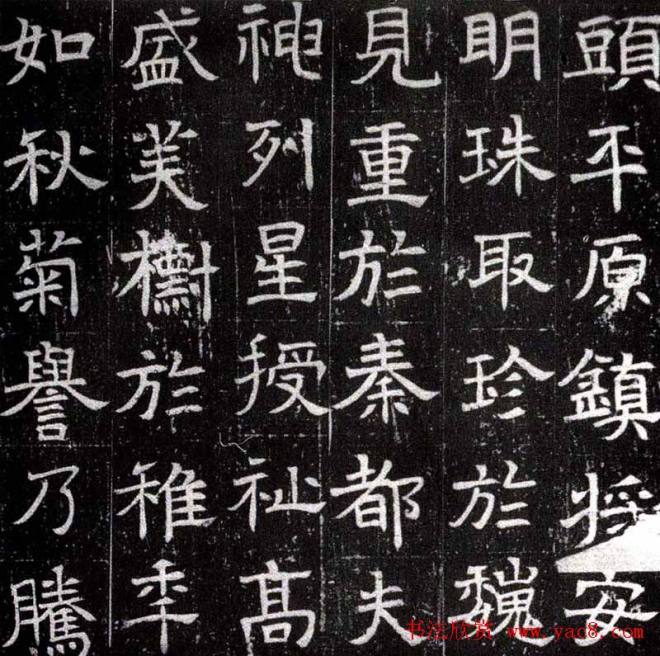 頭平原鎮将安
明珠取珍於魏
見重於秦都夫
神列星授祉高
盛美樹於稚年
如秋菊譽乃騰
书法欣赏 www.yac8.com